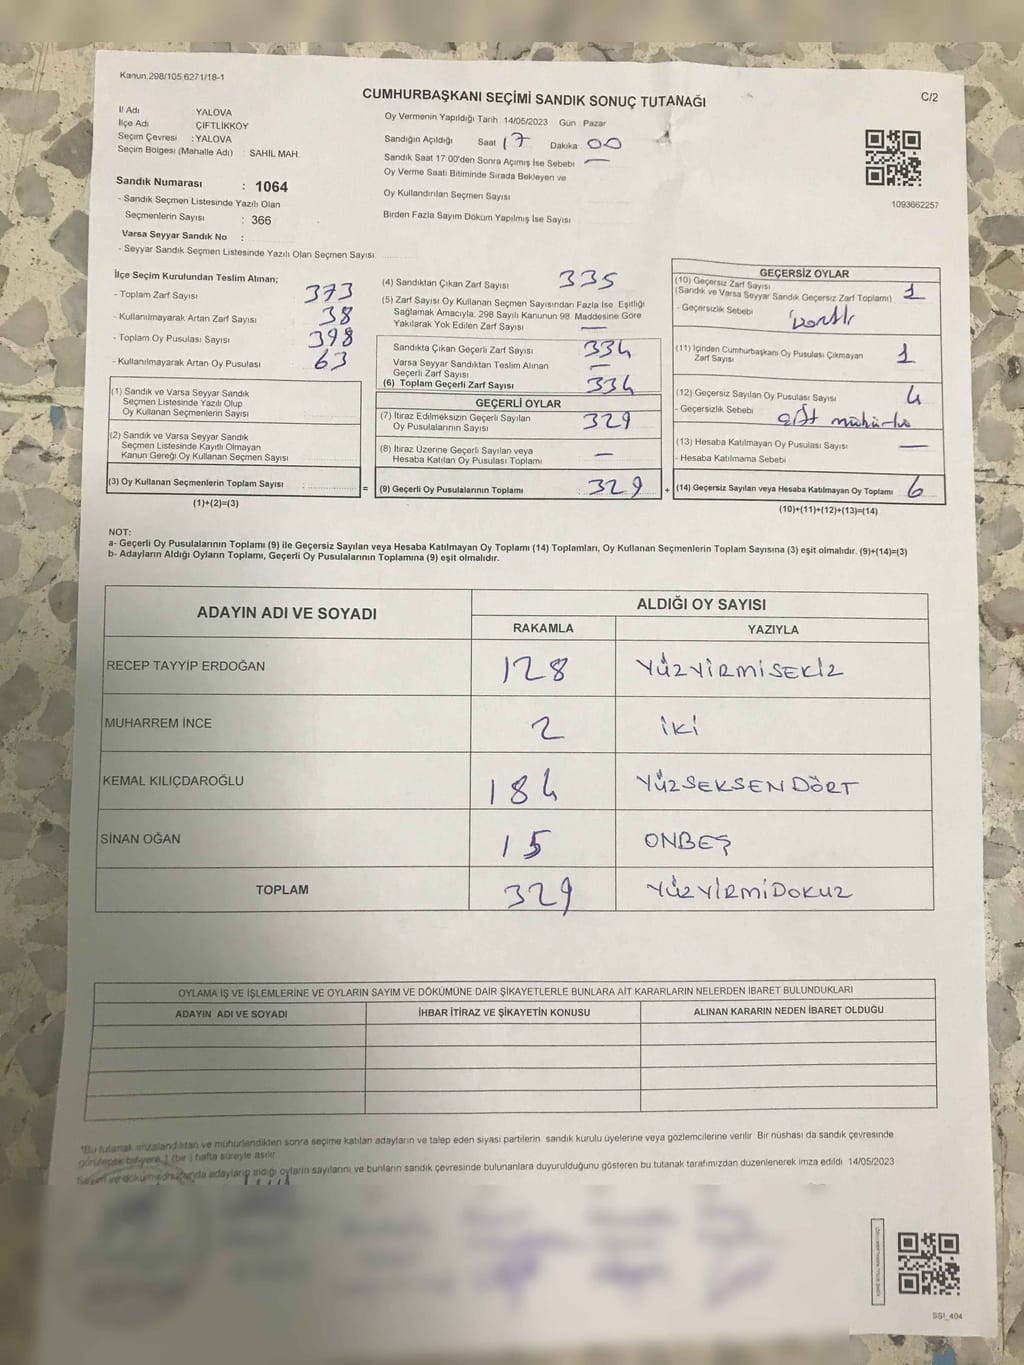 Kanun:298/105 6271/18-1
CUMHURBAŞKANI SEÇİMİ SANDIK SONUÇ TUTANAĞI
C/2
İl Adı YALOVA
İlçe Adı : ÇİFTLİKKÖY
Seçim Çevresi : YALOVA
Seçim Bölgesi (Mahalle Adı) : SAHİL MAH.
Sandık Numarası : 1064
- Sandık Seçmen Listesinde Yazılı Olan
Seçmenlerin Sayısı : 366
Varsa Seyyar Sandık No :
- Seyyar Sandık Seçmen Listesinde Yazılı Olan Seçmen Sayısı
Oy Vermenin Yapıldığı Tarih 14/05/2023 Gün Pazar
Sandığın Açıldığı Saat 17 Dakika 00
Sandık Saat 17 00'den Sonra Açımış İse Sebebi —
Oy Verme Saati Bitiminde Sırada Bekleyen ve
Oy Kullandırılan Seçmen Sayısı
Birden Fazla Sayım Döküm Yapılmış İse Sayısı
1093662257
İlçe Seçim Kurulundan Teslim Alınan;
- Toplam Zarf Sayısı 373
- Kullanılmayarak Artan Zarf Sayısı 38
- Toplam Oy Pusulası Sayısı 398
- Kullanılmayarak Artan Oy Pusulası 63
(1) Sandık ve Varsa Seyyar Sandık
Seçmen Listesinde Yazılı Olup
Oy Kullanan Seçmenlerin Sayısı
(2) Sandık ve Varsa Seyyar Sandık
Seçmen Listesinde Kayıtlı Olmayan
Kanun Gereği Oy Kullanan Seçmen Sayısı
(3) Oy Kullanan Seçmenlerin Toplam Sayısı :
(1)+(2)=(3)
(4) Sandıktan Çıkan Zarf Sayısı 335
(5) Zarf Sayısı Oy Kullanan Seçmen Sayısından Fazla İse, Eşitliği
Sağlamak Amacıyla; 298 Sayılı Kanunun 98. Maddesine Göre
Yakılarak Yok Edilen Zarf Sayısı —
Sandıkta Çıkan Geçerli Zarf Sayısı 334
Varsa Seyyar Sandıktan Teslim Alınan
Geçerli Zarf Sayısı —
(6) Toplam Geçerli Zarf Sayısı 334
GEÇERLİ OYLAR
(7) İtiraz Edilmeksizin Geçerli Sayılan
Oy Pusulalarının Sayısı 329
(8) İtiraz Üzerine Geçerli Sayılan veya
Hesaba Katılan Oy Pusulası Toplamı —
= (9) Geçerli Oy Pusulalarının Toplamı : 329 +
GEÇERSİZ OYLAR
(10) Geçersiz Zarf Sayısı
(Sandık ve Varsa Seyyar Sandık Geçersiz Zarf Toplamı) 1
- Geçersizlik Sebebi
(11) İçinden Cumhurbaşkanı Oy Pusulası Çıkmayan
Zarf Sayısı 1
(12) Geçersiz Sayılan Oy Pusulası Sayısı 4
- Geçersizlik Sebebi çift mühürlü
(13) Hesaba Katılmayan Oy Pusulası Sayısı —
- Hesaba Katılmama Sebebi
(14) Geçersiz Sayılan veya Hesaba Katılmayan Oy Toplamı 6
(10)+(11)+(12)+(13)=(14)
NOT:
a- Geçerli Oy Pusulalarının Toplamı (9) ile Geçersiz Sayılan veya Hesaba Katılmayan Oy Toplamı (14) Toplamları, Oy Kullanan Seçmenlerin Toplam Sayısına (3) eşit olmalıdır. (9)+(14)=(3)
b- Adayların Aldığı Oyların Toplamı, Geçerli Oy Pusulalarının Toplamına (9) eşit olmalıdır.
ADAYIN ADI VE SOYADI ALDIĞI OY SAYISI
RAKAMLA YAZIYLA
RECEP TAYYİP ERDOĞAN 128 YÜZYİRMİSEKİZ
MUHARREM İNCE 2 İKİ
KEMAL KILIÇDAROĞLU 184 YÜZSEKSENDÖRT
SİNAN OĞAN 15 ONBEŞ
TOPLAM 329 YÜZYİRMİDOKUZ
OYLAMA İŞ VE İŞLEMLERİNE VE OYLARIN SAYIM VE DÖKÜMÜNE DAİR ŞİKAYETLERLE BUNLARA AİT KARARLARIN NELERDEN İBARET BULUNDUKLARI
ADAYIN ADI VE SOYADI İHBAR İTİRAZ VE ŞİKAYETİN KONUSU ALINAN KARARIN NEDEN İBARET OLDUĞU
*Bu tutanak imzalandıktan ve mühürlendikten sonra seçime katılan adayların ve talep eden siyasi partilerin sandık kurulu üyelerine veya gözlemcilerine verilir Bir nüshası da sandık çevresinde
görülecek bir yere 1 (bir) hafta süreyle asılır
Sayım ve dökümü adayların aldığı oyların sayılarını ve bunların sandık çevresinde bulunanlara duyurulduğunu gösteren bu tutanak tarafımızdan düzenlenerek imza edildi 14/05/2023
SSI_404